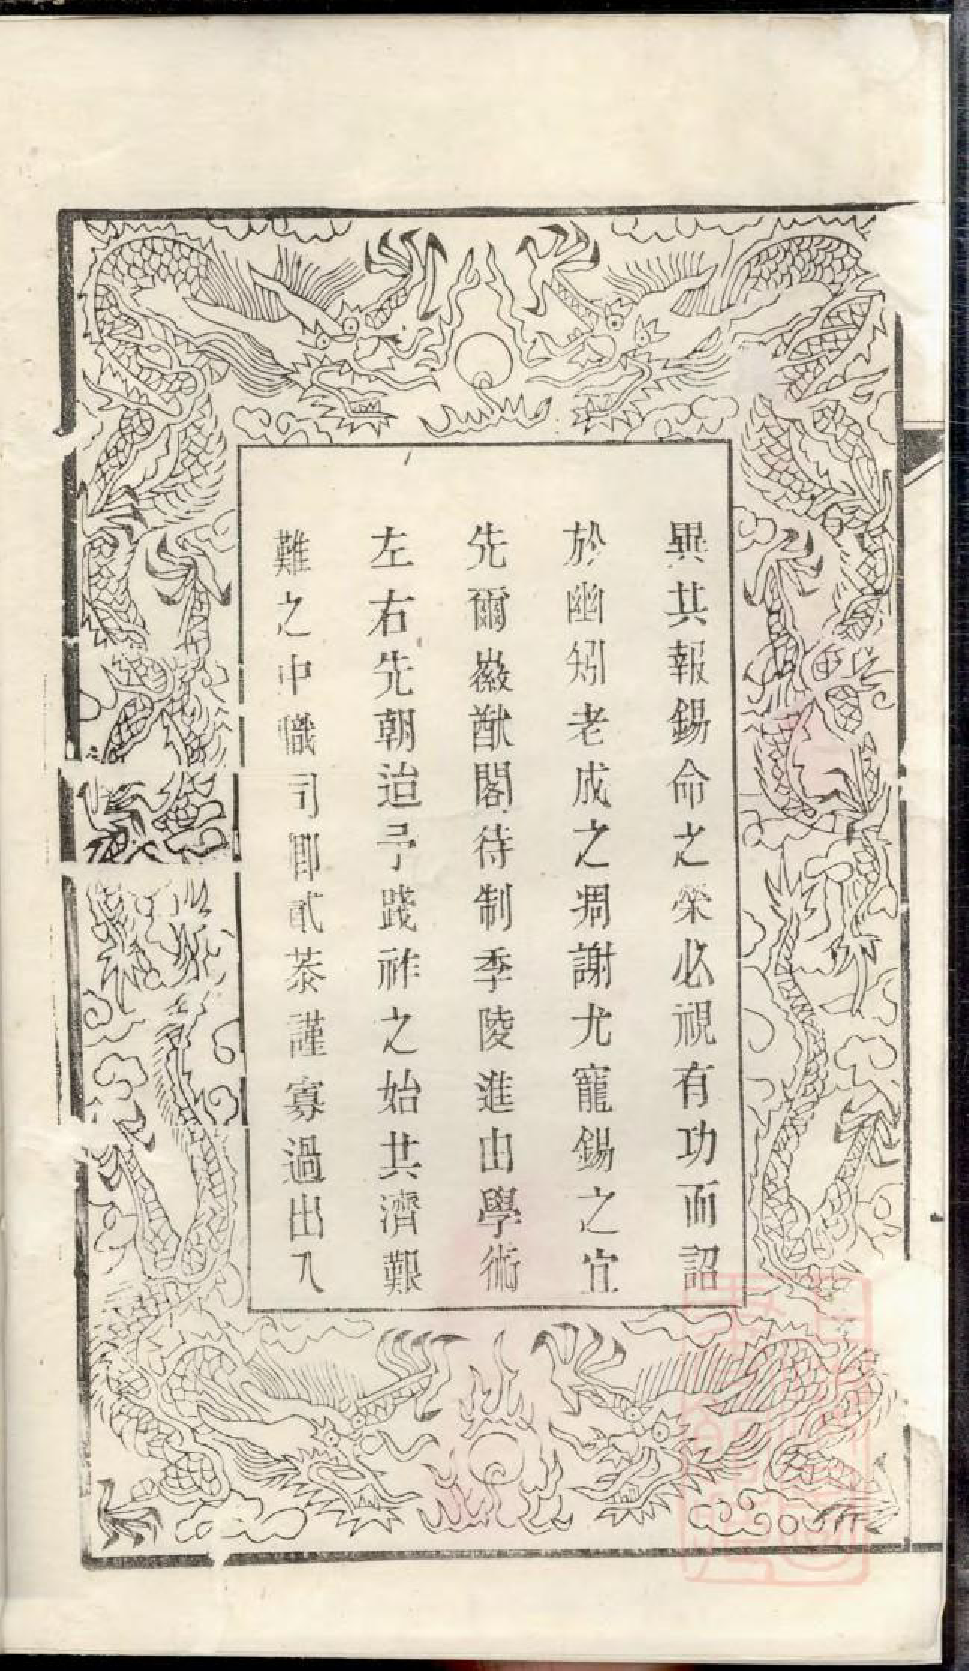 異其報錫命之榮必視有功而詔
於幽矧老成之凋謝尤寵錫之宜
先爾徽猷閣待制季陵進由學術
左右先朝迨予踐祚之始共濟艱
難之中職司卿貳恭謹寡過出入